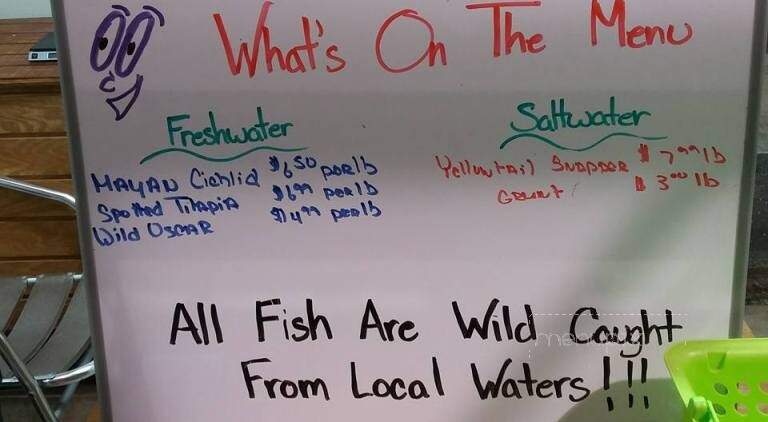 What's On The Menu
Freshwater
Mayan Cichlid $6.50 per lb
Spotted Tilapia $6.99 per lb
Wild Oscar $4.99 per lb
Saltwater
Yellowtail Snapper $7.99 lb
Grunt $3.00 lb
All Fish Are Wild Caught
From Local Waters!!!